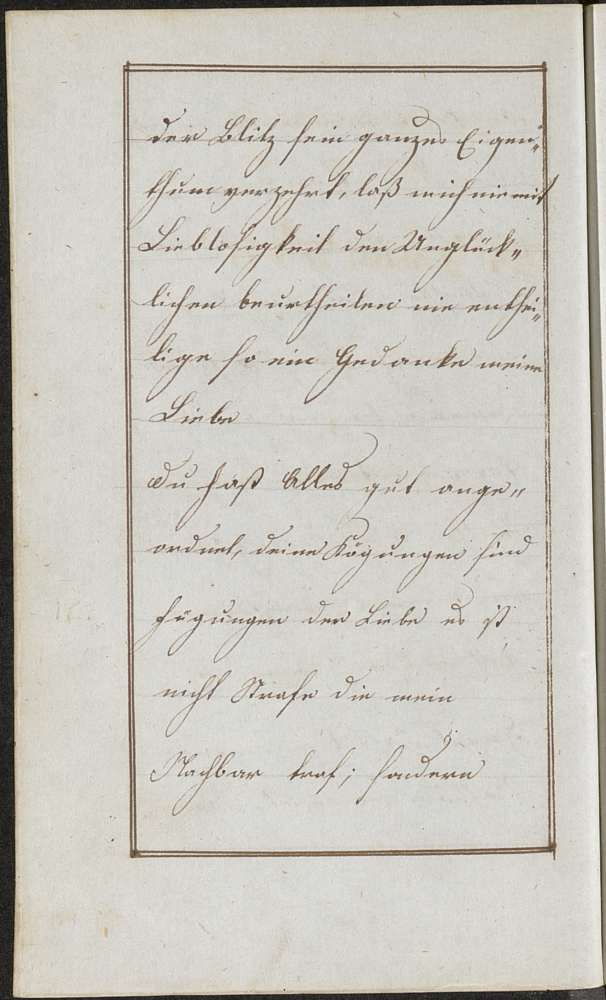 der Blitz sein ganzes Eigen„
thum verzehrt, laß mich nie mit
Lieblosigkeit den Unglück„
lichen beurtheilen nie enthei„
lige so ein Gedanke meine
Liebe
Du hast Alles gut ange„
ordnet, deine Fügungen sind
fügungen der Liebe es ist
nicht Strafe die mein
Nachbar traf; sondern